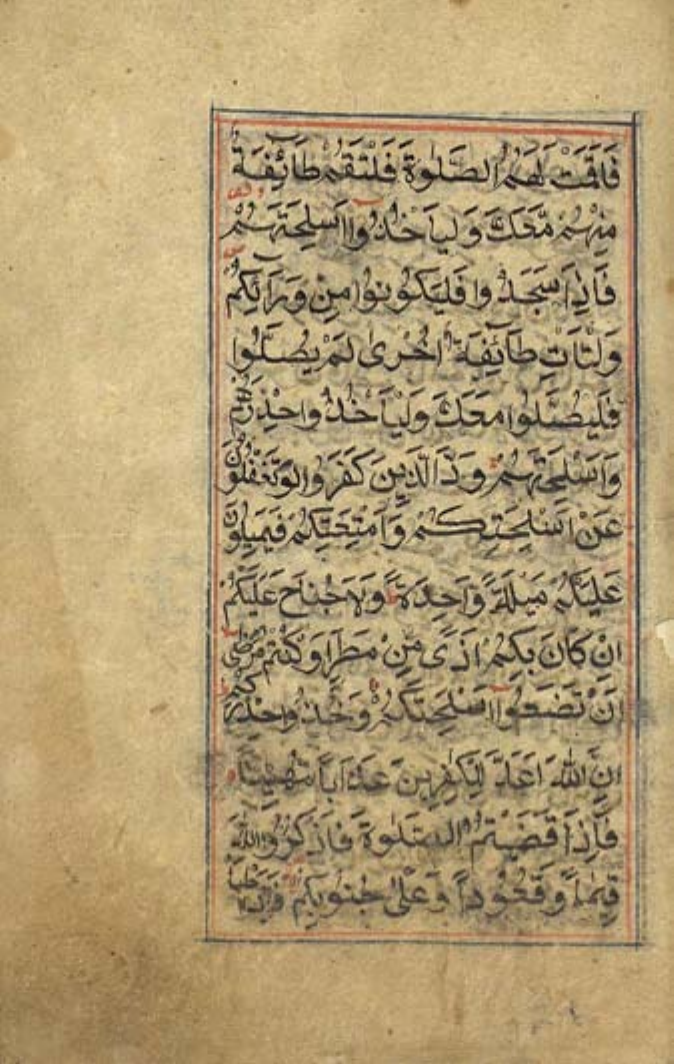 فَاَقَمْتَ لَهُمُ الصَّلٰوةَ فَلْتَقُمْ طَآئِفَةٌ
مِنْهُمْ مَّعَكَ وَلْيَاْخُذُوْٓا اَسْلِحَتَهُمْ
فَاِذَا سَجَدُوْا فَلْيَكُوْنُوْا مِنْ وَرَآئِكُمْ
وَلْتَاْتِ طَآئِفَةٌ اُخْرٰى لَمْ يُصَلُّوْا
فَلْيُصَلُّوْا مَعَكَ وَلْيَاْخُذُوْا حِذْرَهُمْ
وَاَسْلِحَتَهُمْ وَدَّ الَّذِيْنَ كَفَرُوْا لَوْ تَغْفُلُوْنَ
عَنْ اَسْلِحَتِكُمْ وَاَمْتِعَتِكُمْ فَيَمِيْلُوْنَ
عَلَيْكُمْ مَيْلَةً وَّاحِدَةً ط وَلَا جُنَاحَ عَلَيْكُمْ
اِنْ كَانَ بِكُمْ اَذًى مِّنْ مَطَرٍ اَوْ كُنْتُمْ مَرْضٰى
اَنْ تَضَعُوْٓا اَسْلِحَتَكُمْ ط وَخُذُوْا حِذْرَكُمْ ط
اِنَّ اللّٰهَ اَعَدَّ لِلْكٰفِرِيْنَ عَذَابًا مُّهِيْنًا
فَاِذَا قَضَيْتُمُ الصَّلٰوةَ فَاذْكُرُوا اللّٰهَ
قِيٰمًا وَّقُعُوْدًا وَّعَلٰى جُنُوْبِكُمْ فَاِذَا